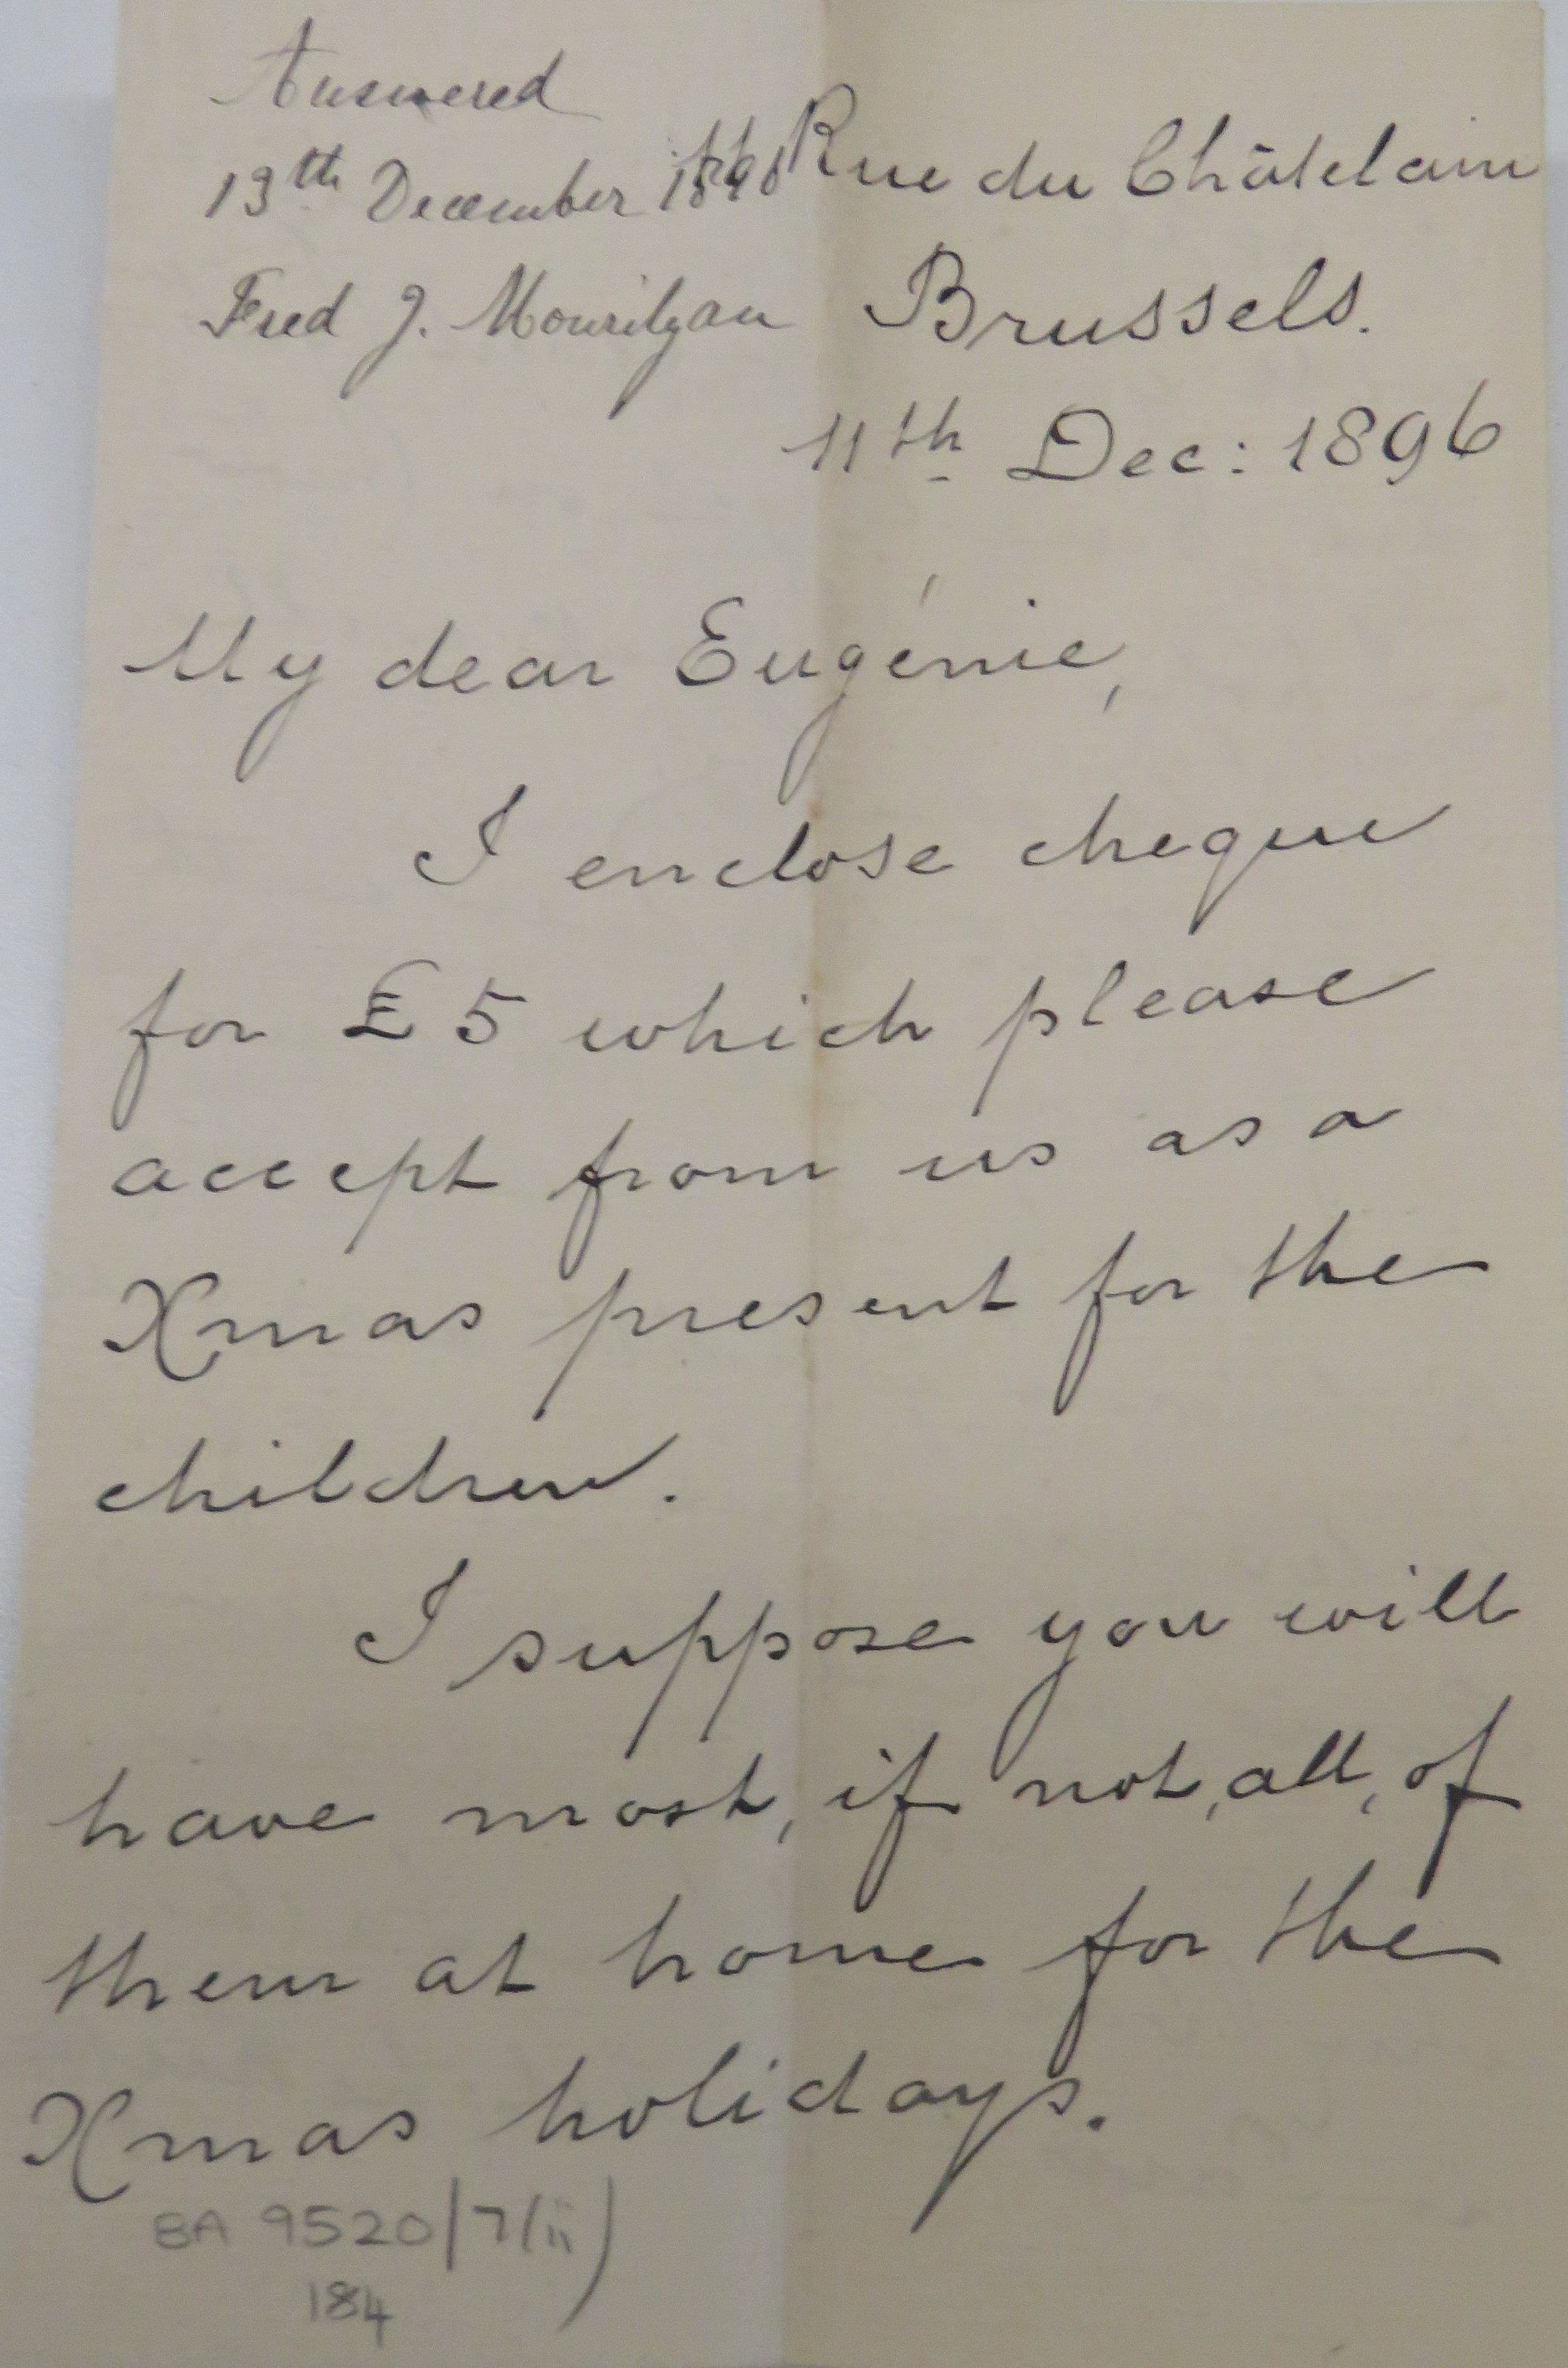 Answered
13th December 1896
Fred J. Mourilyan
Rue du Châtelain
Brussels.
11th Dec: 1896
My dear Eugénie,
I enclose cheque
for £5 which please
accept from us as a
Xmas present for the
children.
I suppose you will
have most, if not, all, of
them at home for the
Xmas holidays.
BA 9520/7(ii)
184